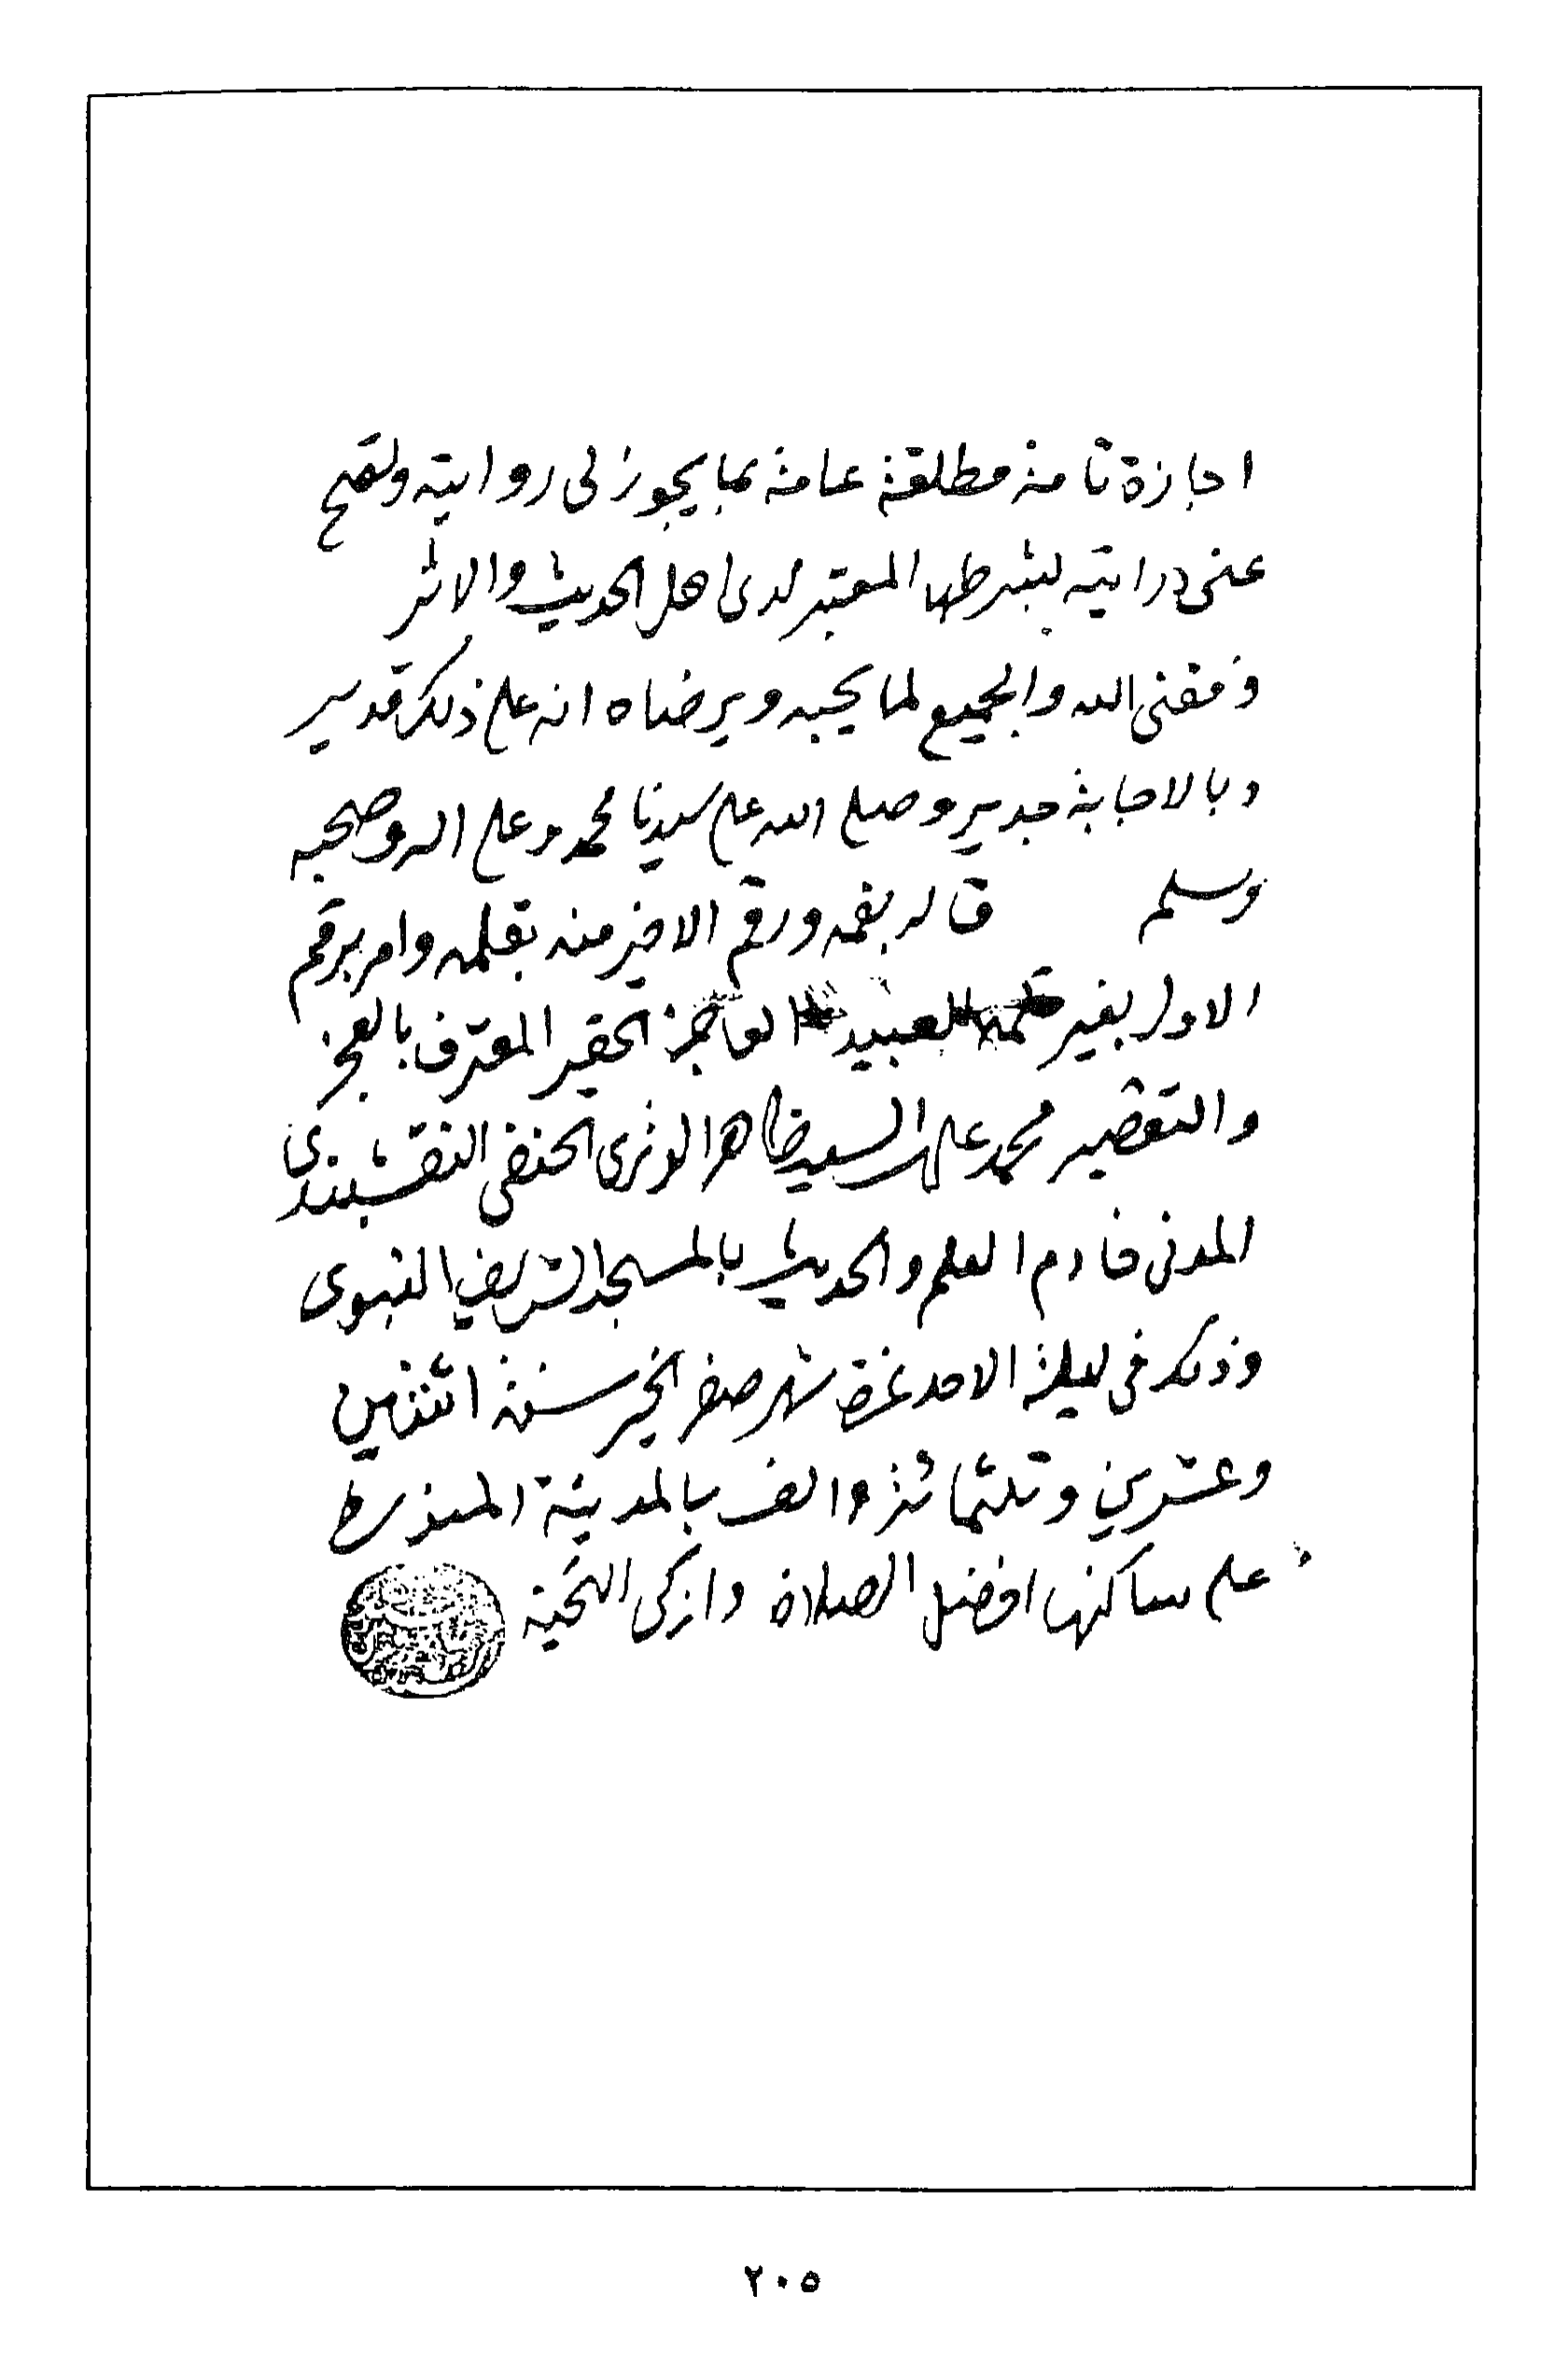 اجازة تامة مطلقة عامة بما يجوز لى روايته وتصح
عنى درايته بشرطها المعتبر لدى اهل الحديث والاثر
وفقنى الله والجميع لما يحبه ويرضاه انه على ذلك قدير
وبالاجابة جدير وصلى الله على سيدنا محمد وعلى اله وصحبه
وسلم قاله بفمه ورقم الاخير منه بقلمه وامر برقم
الاول بغير قلمه العبيد العاجز الحقير المعترف بالعجز
والتقصير محمد على السيد ظاهر الوترى الحنفى النقشبندى
المدنى خادم العلم والحديث بالمسجد الشريف النبوى
وذلك فى ليلة الاحد غرة شهر صفر الخير سنة اثنتين
وعشرين وثلثمائة والف بالمدينة المنورة
على ساكنها افضل الصلاة وازكى التحية
٢٠٥